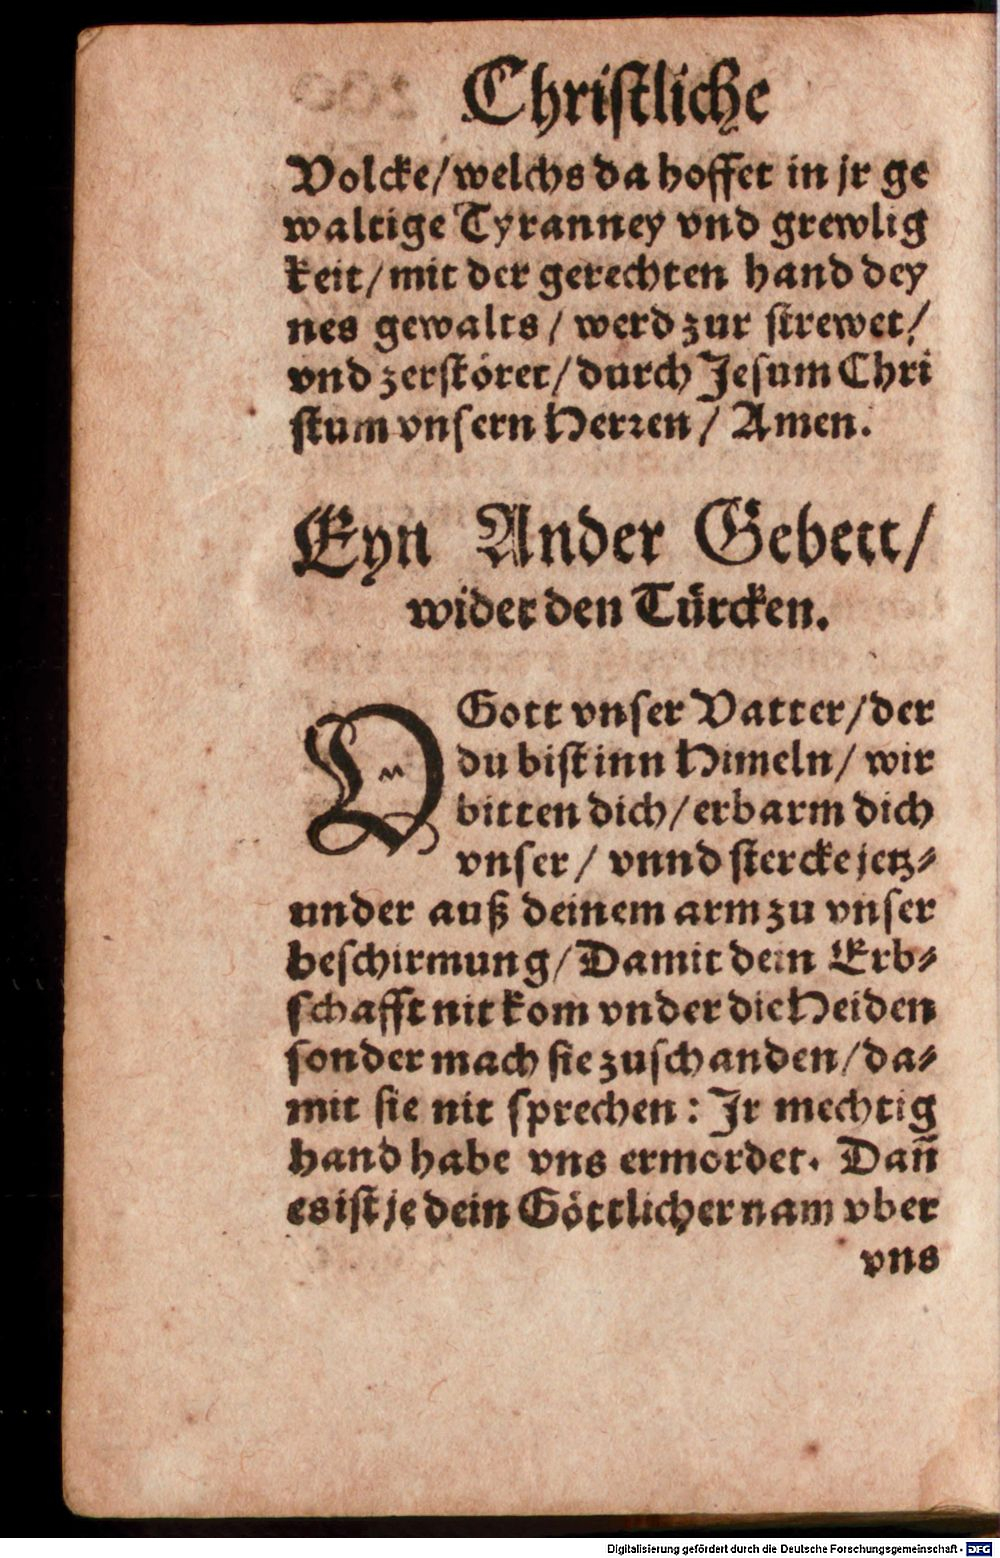 Christliche
Volcke/welchs da hoffet in jr ge
waltige Tyranney vnd grewlig
keit/mit der gerechten hand dey
nes gewalts/ werd zur strewet/
vnd zerstöret/durch Jesum Chri
stum vnsern Herren/ Amen.
Eyn Ander Gebett/
wider den Türcken.
O Gott vnser Vatter/der
du bist inn Himeln/ wir
bitten dich/erbarm dich
vnser/ vnnd stercke jetz⸗
under auß deinem arm zu vnser
beschirmung/Damit dein Erb⸗
schafft nit kom vnder die Heiden
sonder mach sie zuschanden/da⸗
mit sie nit sprechen: Jr mechtig
hand habe vns ermordet. Dan̄
es ist je dein Göttlicher nam vber
vns
Digitalisierung gefördert durch die Deutsche Forschungsgemeinschaft - DFG